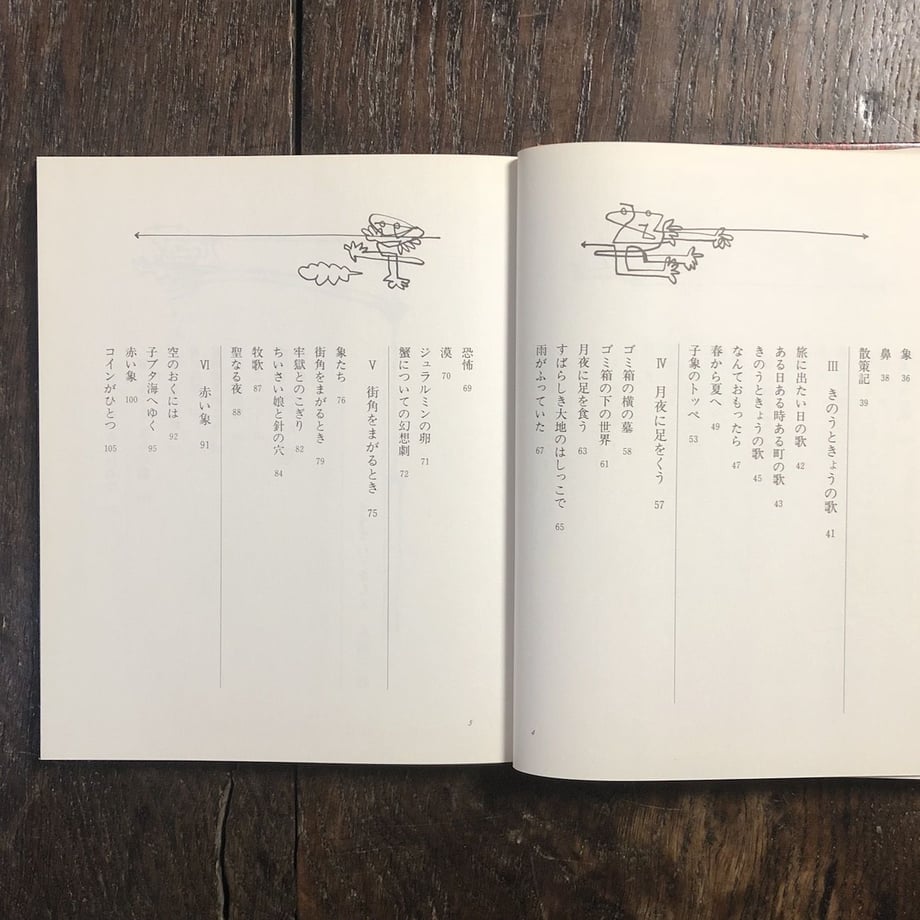 象 36
鼻 38
散策記 39
Ⅲ きのうときょうの歌 41
旅に出たい日の歌 42
ある日ある時ある町の歌 43
きのうときょうの歌 45
なんておもったら 47
春から夏へ 49
子象のトッペ 53
Ⅳ 月夜に足をくう 57
ゴミ箱の横の墓 58
ゴミ箱の下の世界 61
月夜に足を食う 63
すばらしき大地のはしっこで 65
雨がふっていた 67
4
恐怖 69
漠 70
ジュラルミンの卵 71
蟹についての幻想劇 72
Ⅴ 街角をまがるとき 75
象たち 76
街角をまがるとき 79
牢獄とのこぎり 82
ちいさい娘と針の穴 84
牧歌 87
聖なる夜 88
Ⅵ 赤い象 91
空のおくには 92
子ブタ海へゆく 95
赤い象 100
コインがひとつ 105
5